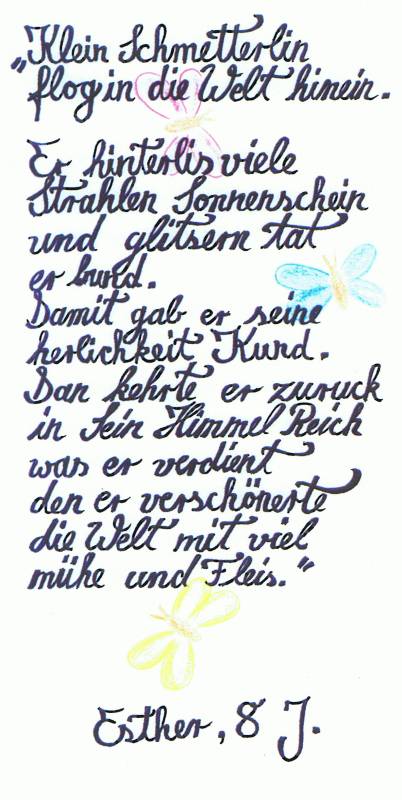 „Klein Schmetterlin
flog in die Welt hinein.
Er hinterlis viele
Strahlen Sonnenschein
und glitsern tat
er bund.
Damit gab er seine
herlichkeit Kund.
Dan kehrte er zurück
in sein Himmel Reich
was er verdient
den er verschönerte
die Welt mit viel
mühe und Fleis.“
Esther, 8 J.